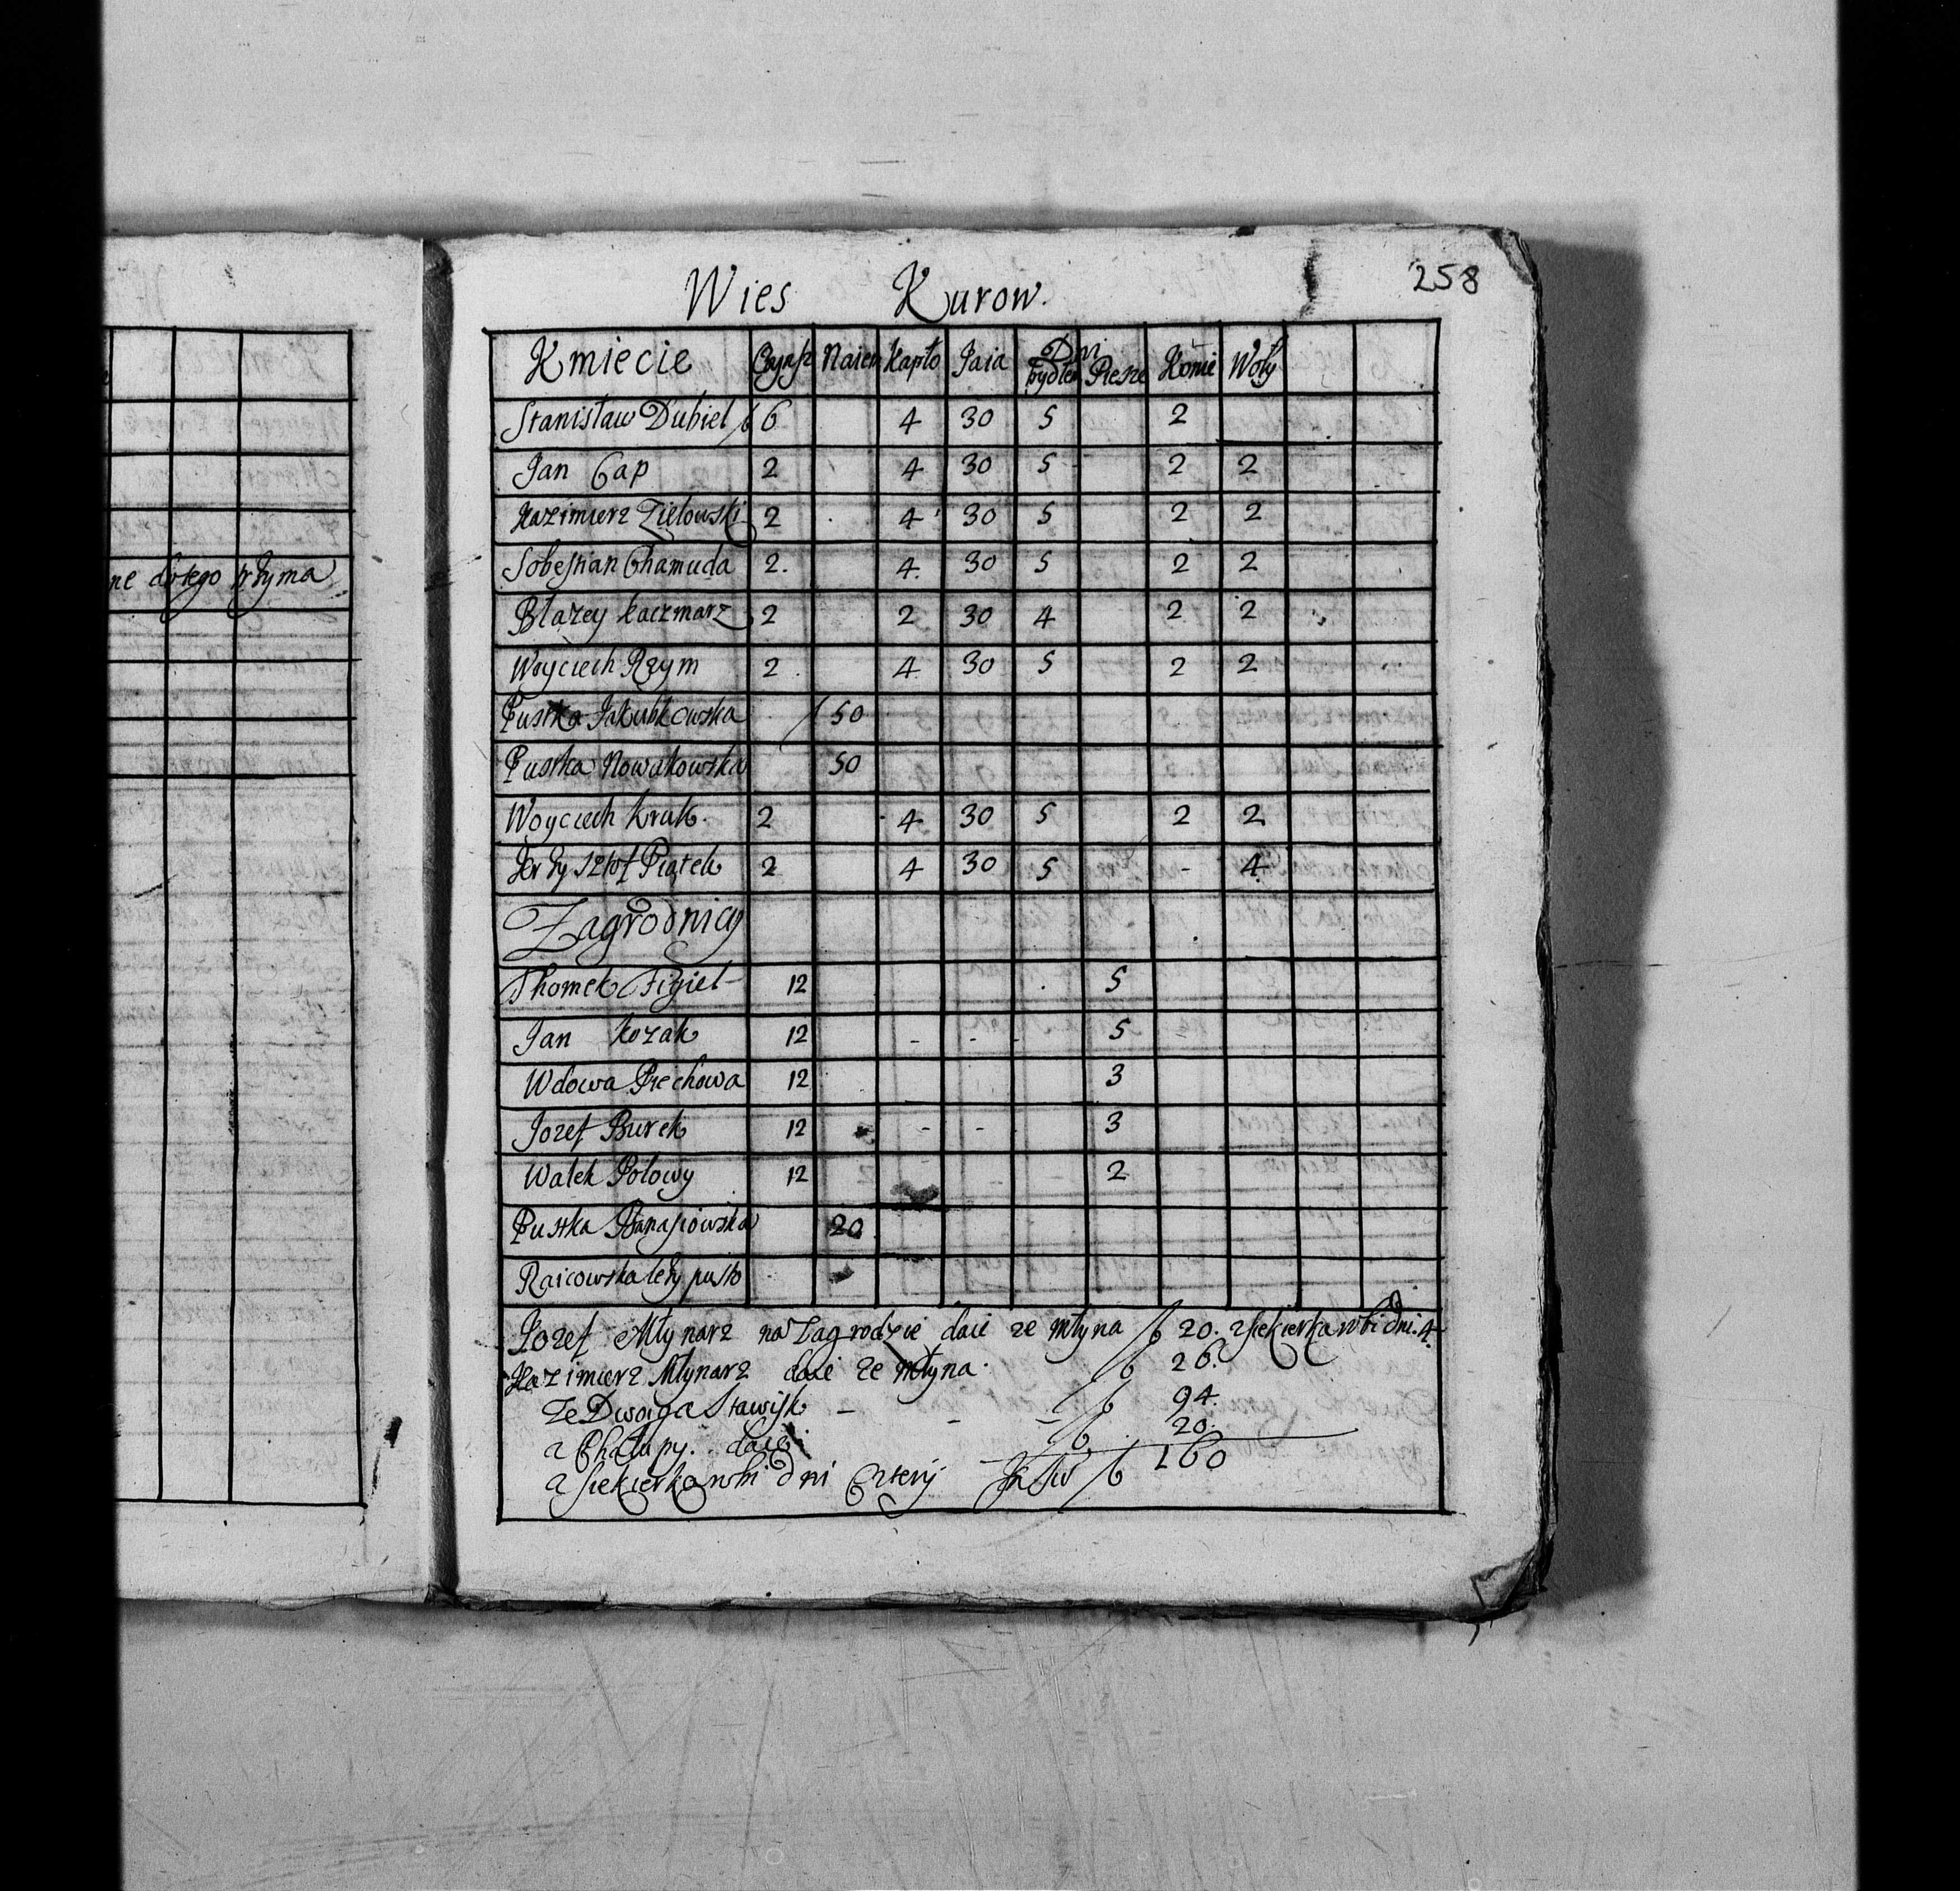 258
Wies Kurow.
ne dotego trzyma
Kmiecie Czynsz Naiem Kapło Jaia Dni bydłem Piesze Konie Woły
Stanisław Dubiel f 6 4 30 5 2
Jan Cap 2 4 30 5 2 2
Kazimierz Zielowski 2 4 30 5 2 2
Sobestian Chamuda 2. 4. 30 5 2 2
Błazey Kaczmarz 2 2 30 4 2 2
Woyciech Rzym 2 4 30 5 2 2
Pustka Jakubkowska f 50
Pustka Nowakowska 50
Woyciech Krak. 2 4 30 5 2 2
Krzysztof Piątek 2 4 30 5 - 4
Zagrodnicy
Thomek Figiel 12 5
Jan Kozak 12 - - - 5
Wdowa Piechowa 12 3
Jozef Burek 12 - - 3
Walek Polowy 12 2
Pustka Banasiowska 20
Raicowska leży pusto
Jozef Młynarz na Zagrodzie daie ze młyna f 20. a siekierką robi dni. 4
Kazimierz Młynarz daie ze młyna. f 26.
Ze Dwoyga Stawisk - - - f 94.
z Chałupy. daie f 20.
a siekierką robi dni Cztery f 160